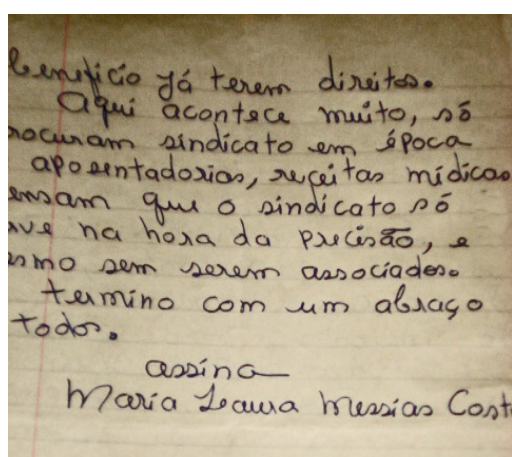 Benefício já terem direitos.
Aqui acontece muito, só
rocuram sindicato em época
aposentadorias, receitas médicas
ensam que o sindicato só
rve na hora da precisão, e
esmo sem serem associados.
termino com um abraço
todos.
assina
Maria Laura Messias Cost